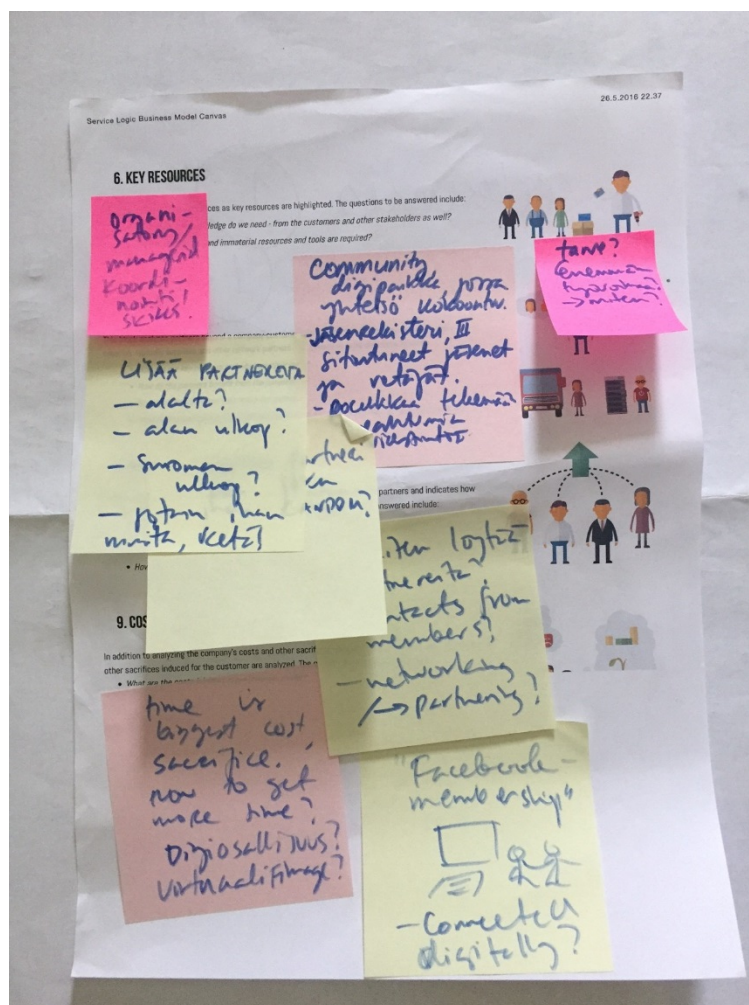 26.5.2016 22.37
Service Logic Business Model Canvas
6. KEY RESOURCES
ces as key resources are highlighted. The questions to be answered include:
ledge do we need - from the customers and other stakeholders as well?
and immaterial resources and tools are required?
organi-
skills!
Community
digipaikka, jossa
yhteisö kokoontuu.
- jäsenrekisteri, III
sitoutuneet jäsenet
ja vetäjät.
- porukkaa tekemään
tarve?
enemmän
→ miten?
LISÄÄ PARTNEREITA
- alalta?
- alan ulkop?
- Suomen
ulkop?
- jotain ihan
muita, keitä?
partners and indicates how
nswered include:
• How
löytää
contacts from
members?
- networking
↳ partnering?
9. COS
In addition to analyzing the company's costs and other sacrif
other sacrifices induced for the customer are analyzed. The
• What are the
time is
biggest cost
sacrifice.
how to get
more time?
Digiosallisuus?
"Facebook-
membership"
- Connected
digitally?